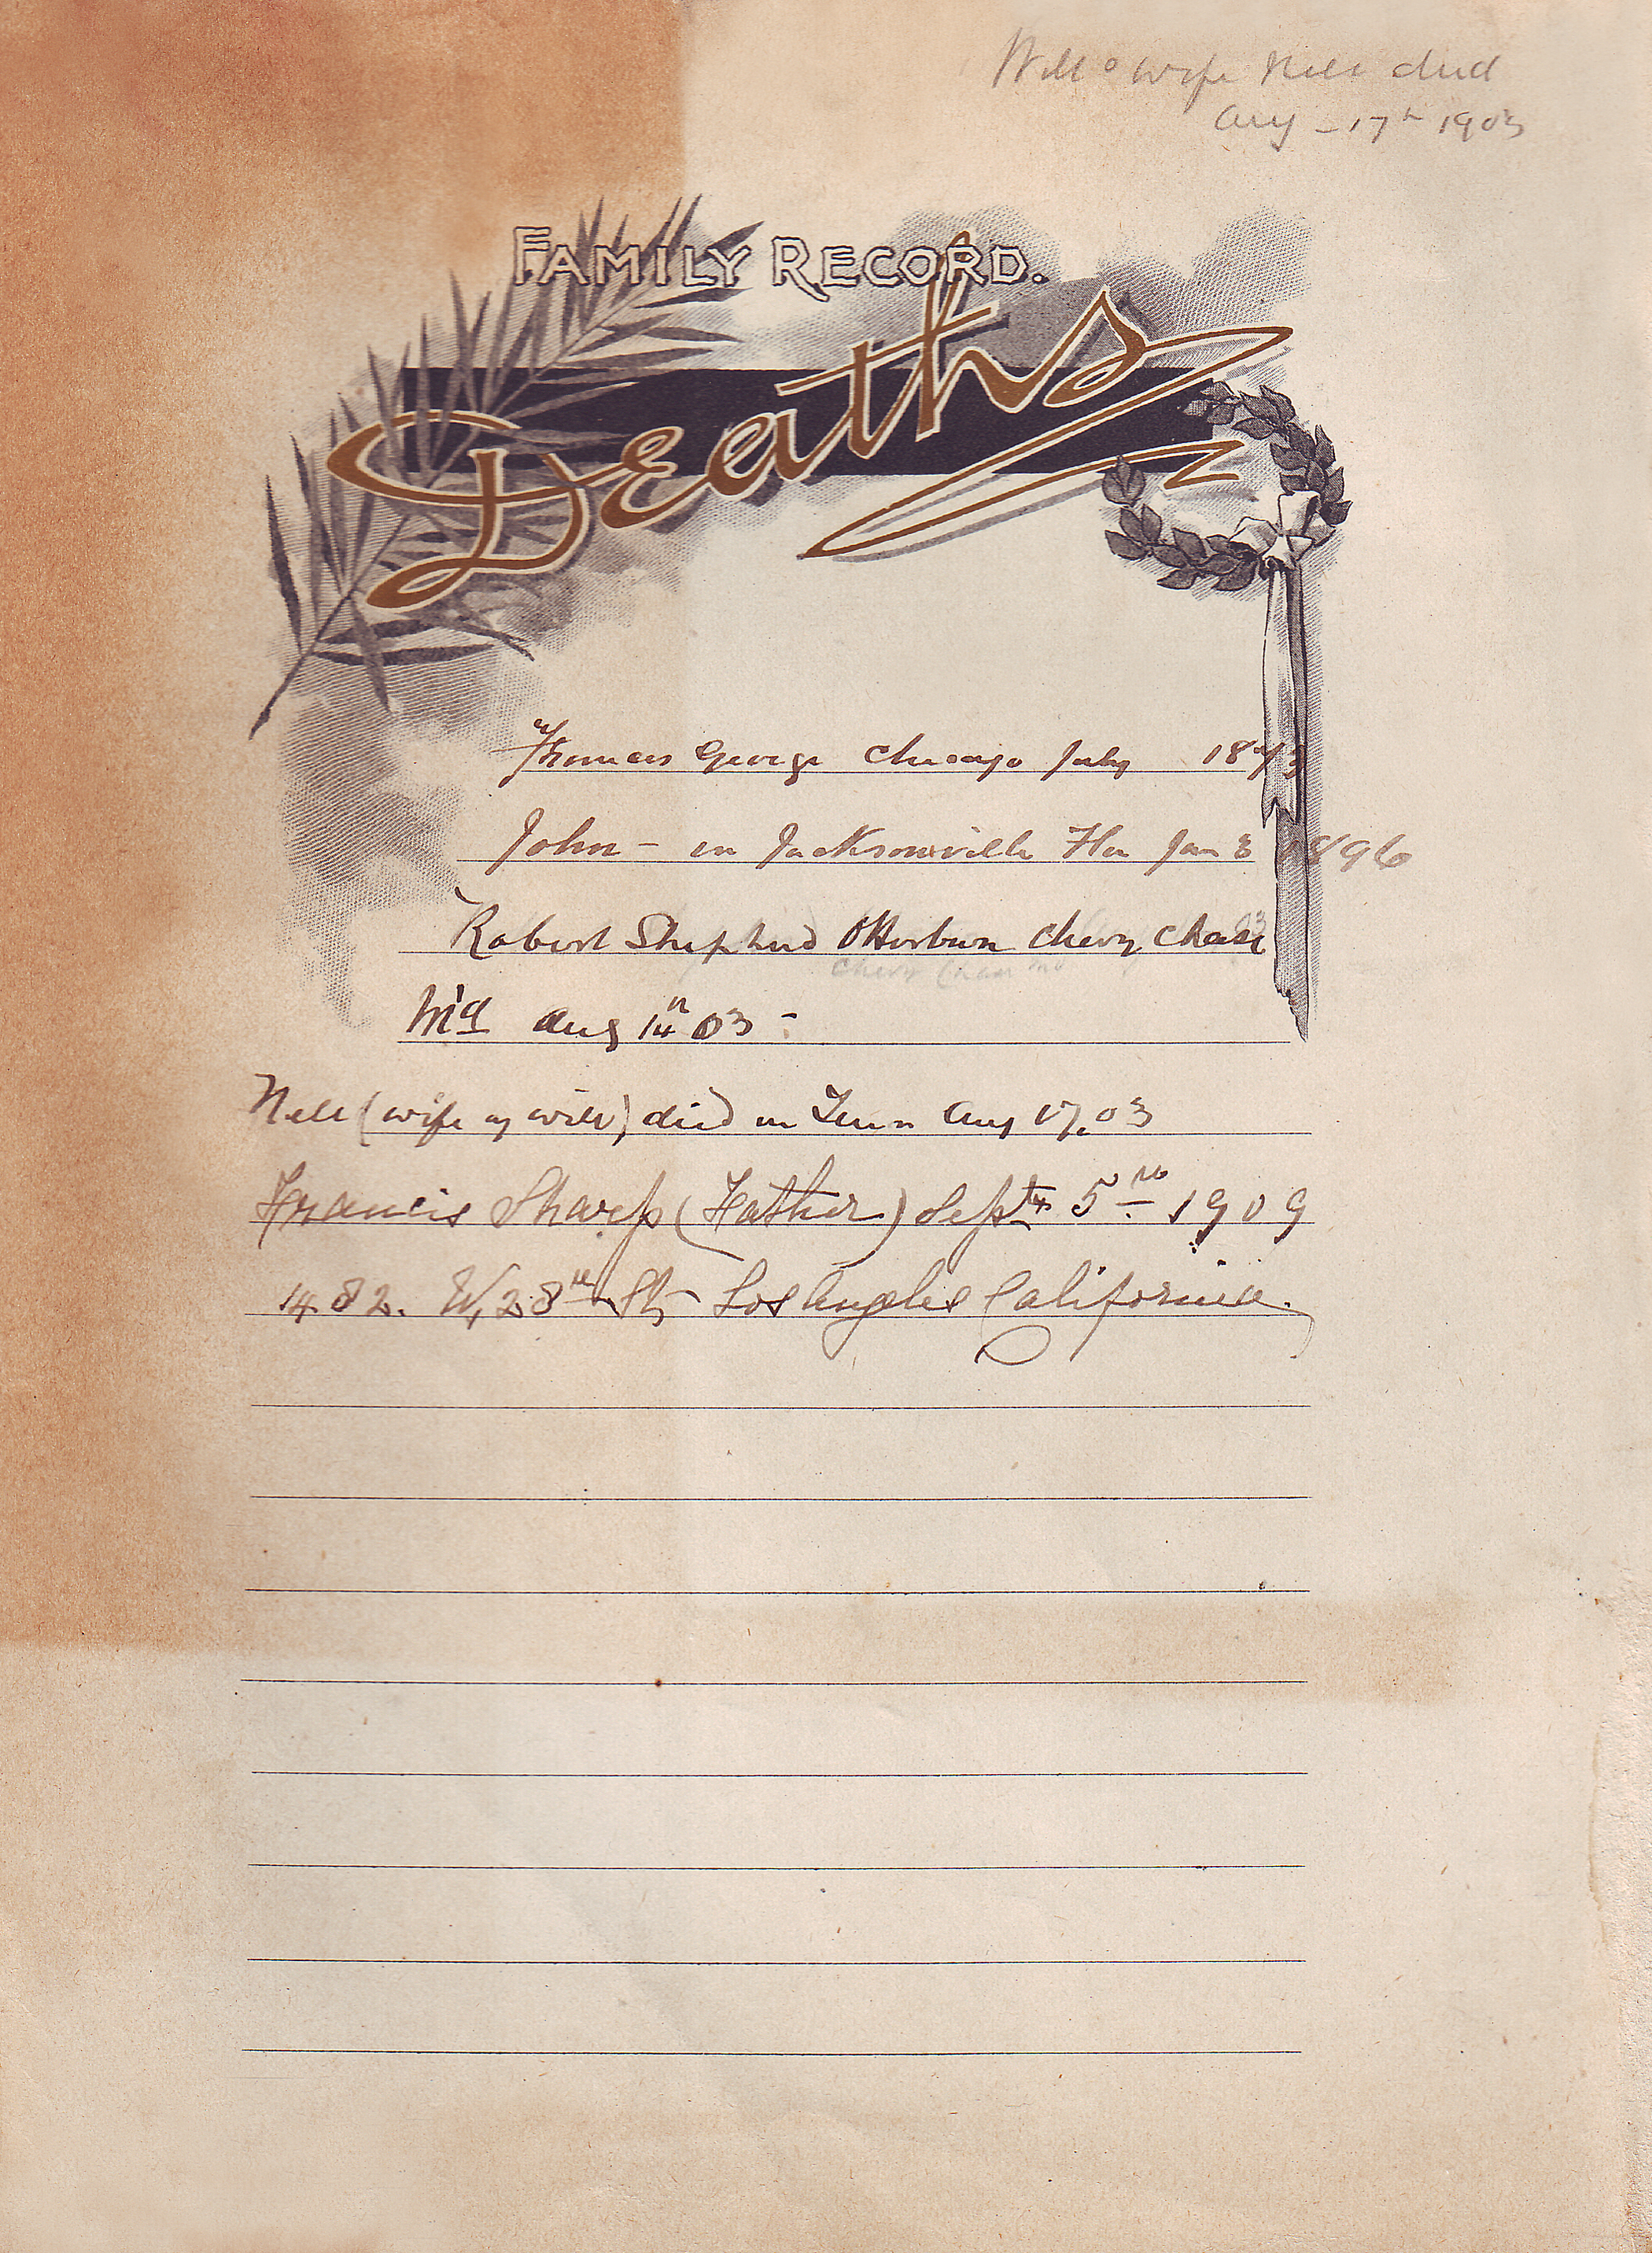 Will's wife Nell died
Aug - 17th 1903
FAMILY RECORD.
Deaths
Thomas George Chicago July 1873
John - in Jacksonville Fla Jan 3 1896
Robert Shepherd Otterburn Chevy Chase
Chevy Chase Md
Md Aug 14th 03 -
Nell (wife of Will) died in Tenn Aug 17, 03
Francis Sharp (Father) Sept 5th 1909
1482. W, 28th St, Los Angeles California.